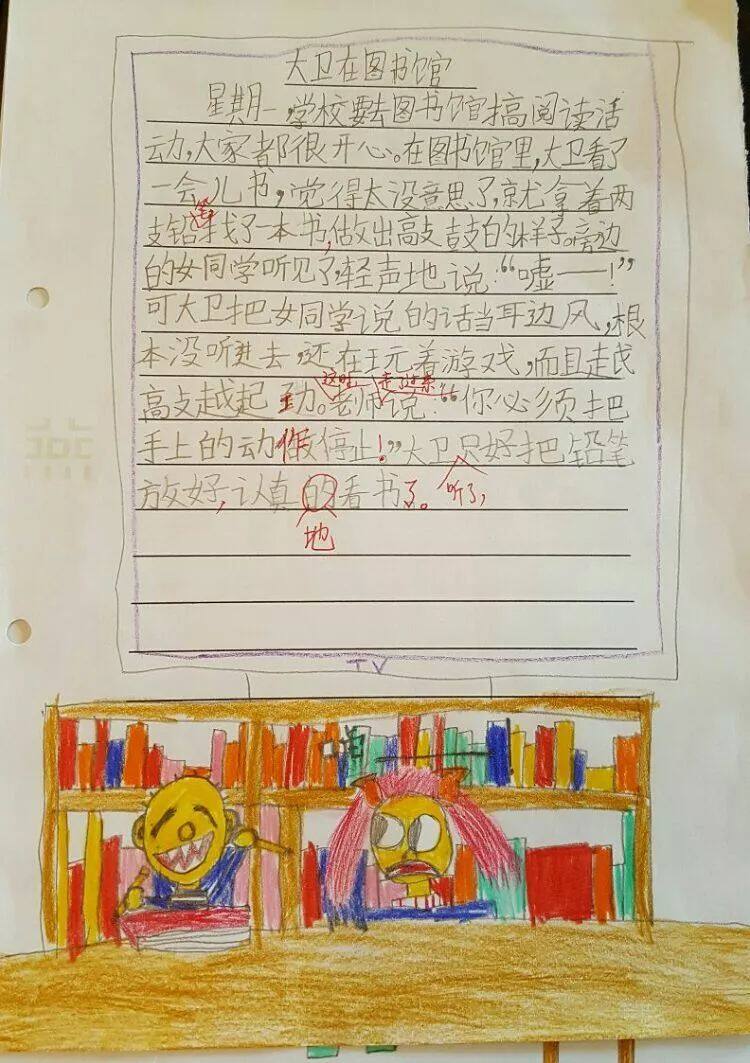 大卫在图书馆
星期一,学校要去图书馆搞阅读活
动,大家都很开心。在图书馆里,大卫看了
一会儿书,觉得太没意思了,就拿着两
笔
支铅找了一本书,做出敲鼓的样子。旁边
的女同学听见了,轻声地说:“嘘——!”
可大卫把女同学说的话当耳边风,根
本没听进去,还在玩着游戏,而且越
这时 走了过来
敲越起劲。老师说:“你必须把
手上的动做停止!”大卫只好把铅笔
放好,认真的看书了。听了,
地
TV